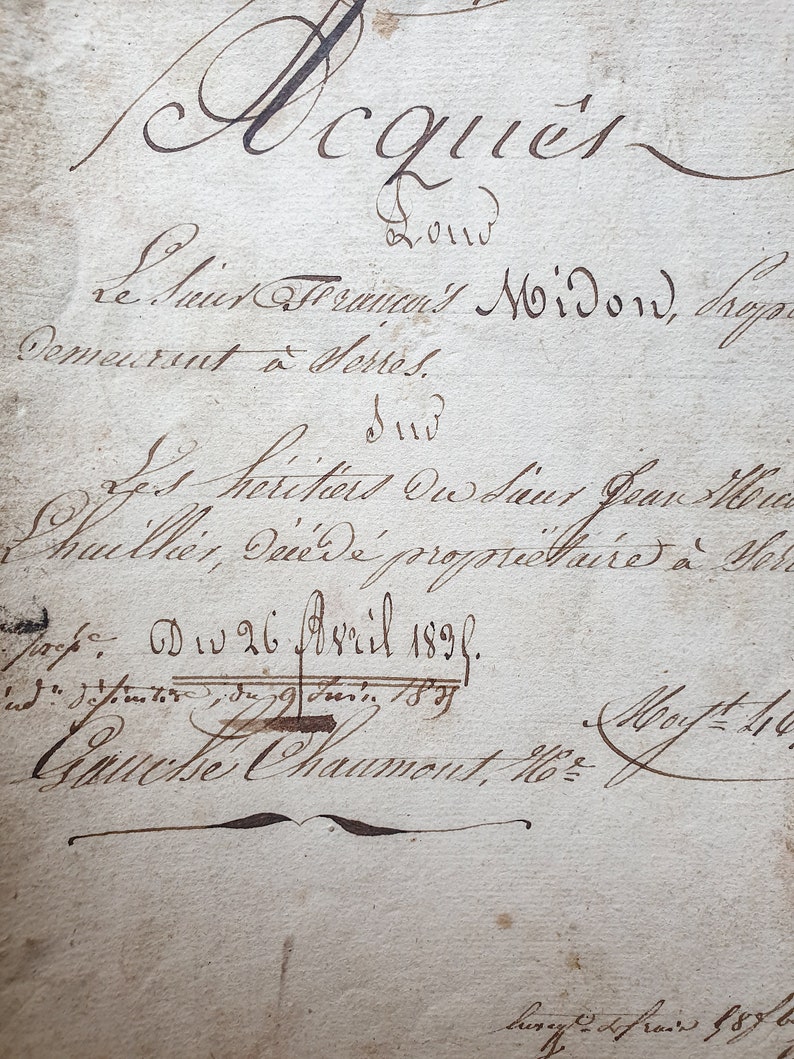 Acquêt
Pour
Le Sieur François Midon, Prop
demeurant à Serres.
Sur
Les héritiers du Sieur Jean
Lhuillier, décédé propriétaire à Serr
prép.e Du 26 Avril 1835.
définitive, du 9 Juin 1835
Gauché Chaumont, N.e
Moyt 46